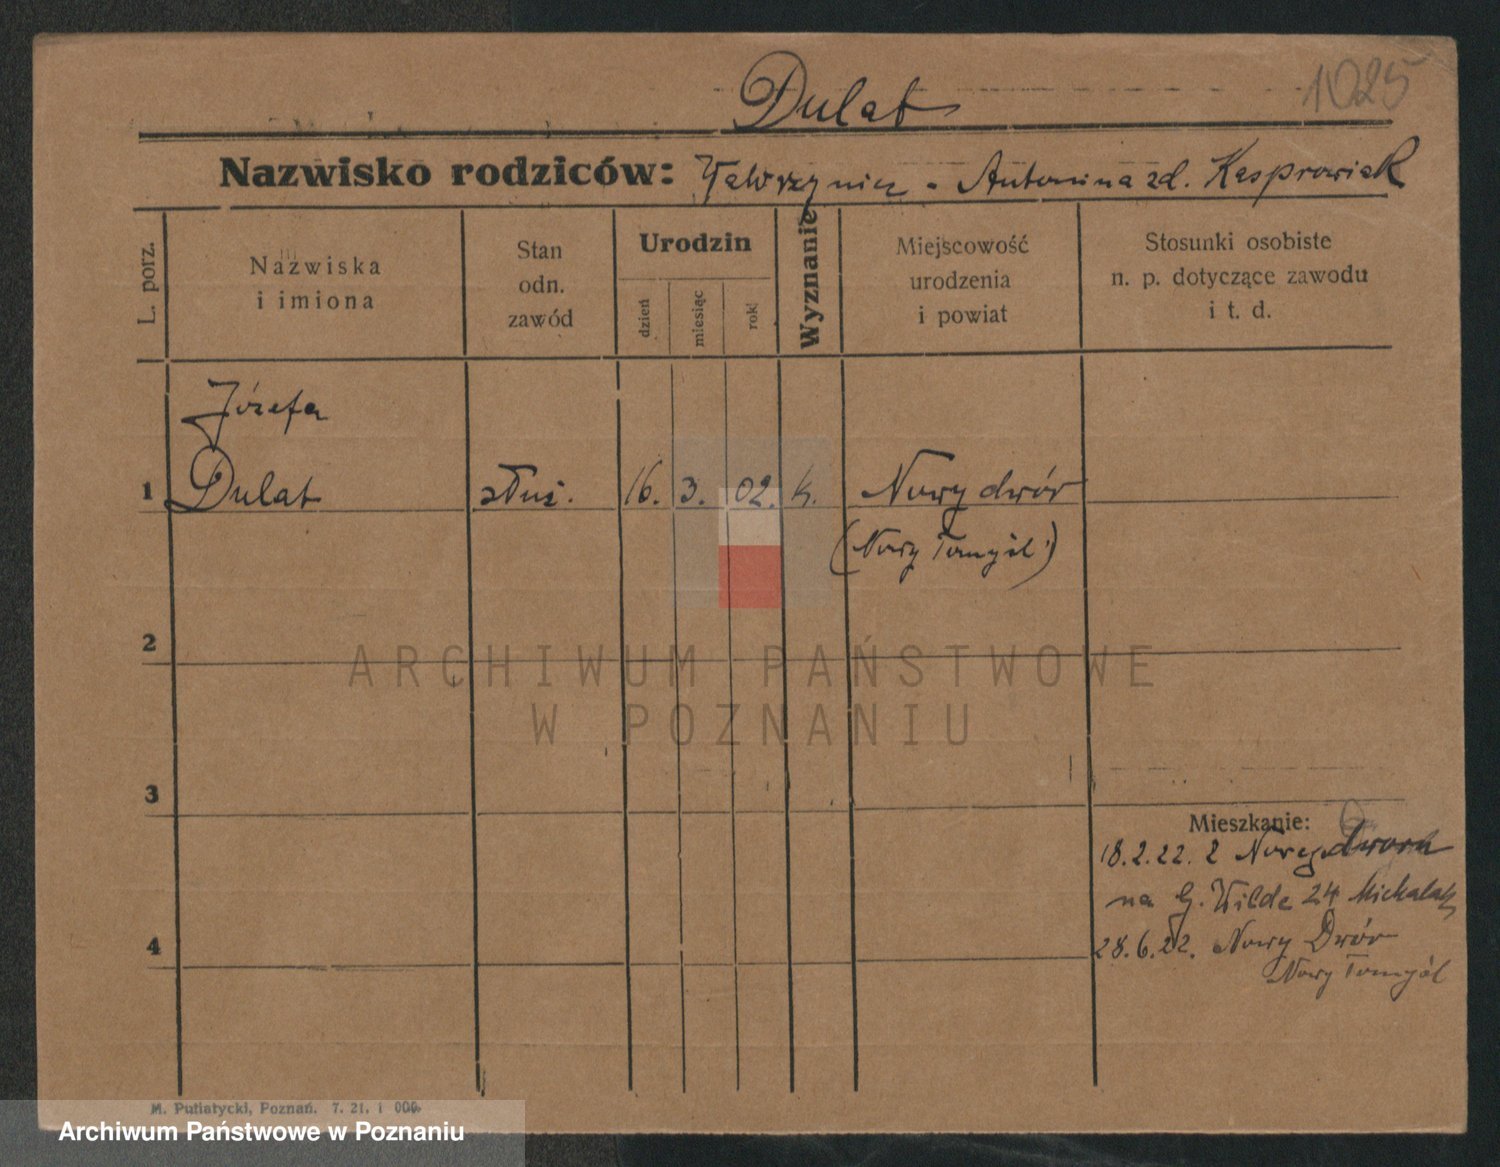 Dulat
1025
Nazwisko rodziców: Wawrzyniec - Antonina zd. Kasprowiak
L. porz.
Nazwiska
i imiona
Stan
odn.
zawód
Urodzin
dzień
miesiąc
rok
Wyznanie
Miejscowość
urodzenia
i powiat
Stosunki osobiste
n. p. dotyczące zawodu
i t. d.
Józefa
1 Dulat służ. 16. 3. 02. k. Nowy dwór
(Nowy Tomyśl)
2
ARCHIWUM PAŃSTWOWE
W POZNANIU
3
Mieszkanie:
18.2.22. z Nowegodworu
na G. Wilde 24 Michalak
4
28.6.22. Nowy Dwór
Nowy Tomyśl
M. Putiatycki, Poznań. 7. 21. 1 000
Archiwum Państwowe w Poznaniu